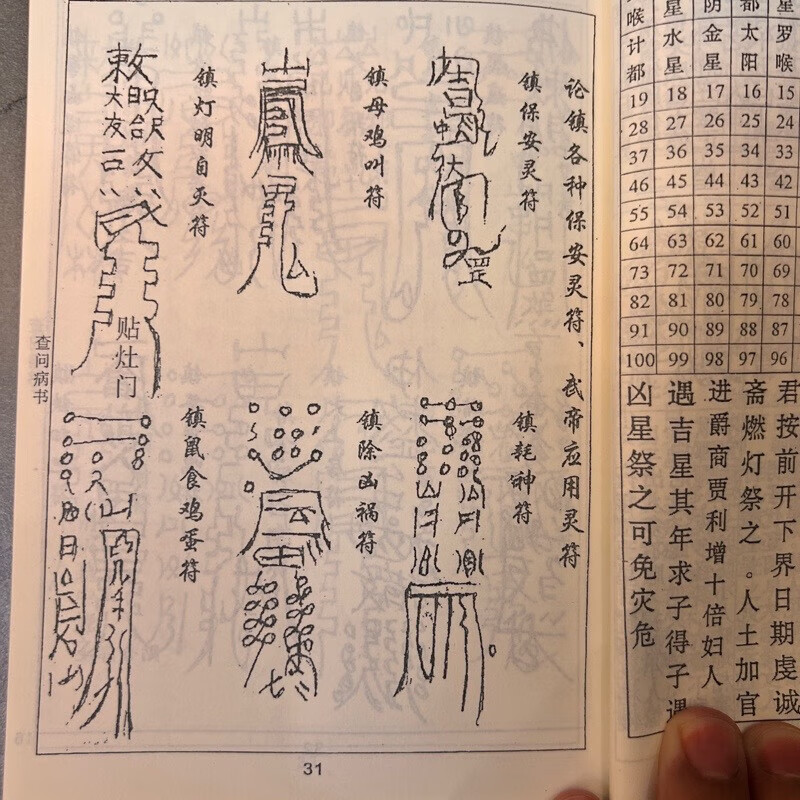 论镇各种保安灵符、武帝应用灵符
镇保安灵符
镇母鸡叫符
镇灯明自灭符
贴灶门
镇耗神符
镇除凶祸符
镇鼠食鸡蛋符
查问病书
31
星罗喉
都太阳
阴金星
星水星
喉计都
19 18 17 16 15
28 27 26 25 24
37 36 35 34 33
46 45 44 43 42
55 54 53 52 51
64 63 62 61 60
73 72 71 70 69
82 81 80 79 78
91 90 89 88 87
100 99 98 97 96
君按前开下界日期虔诚
斋燃灯祭之。人土加官
进爵商贾利增十倍妇人
遇吉星其年求子得子遇
凶星祭之可免灾危